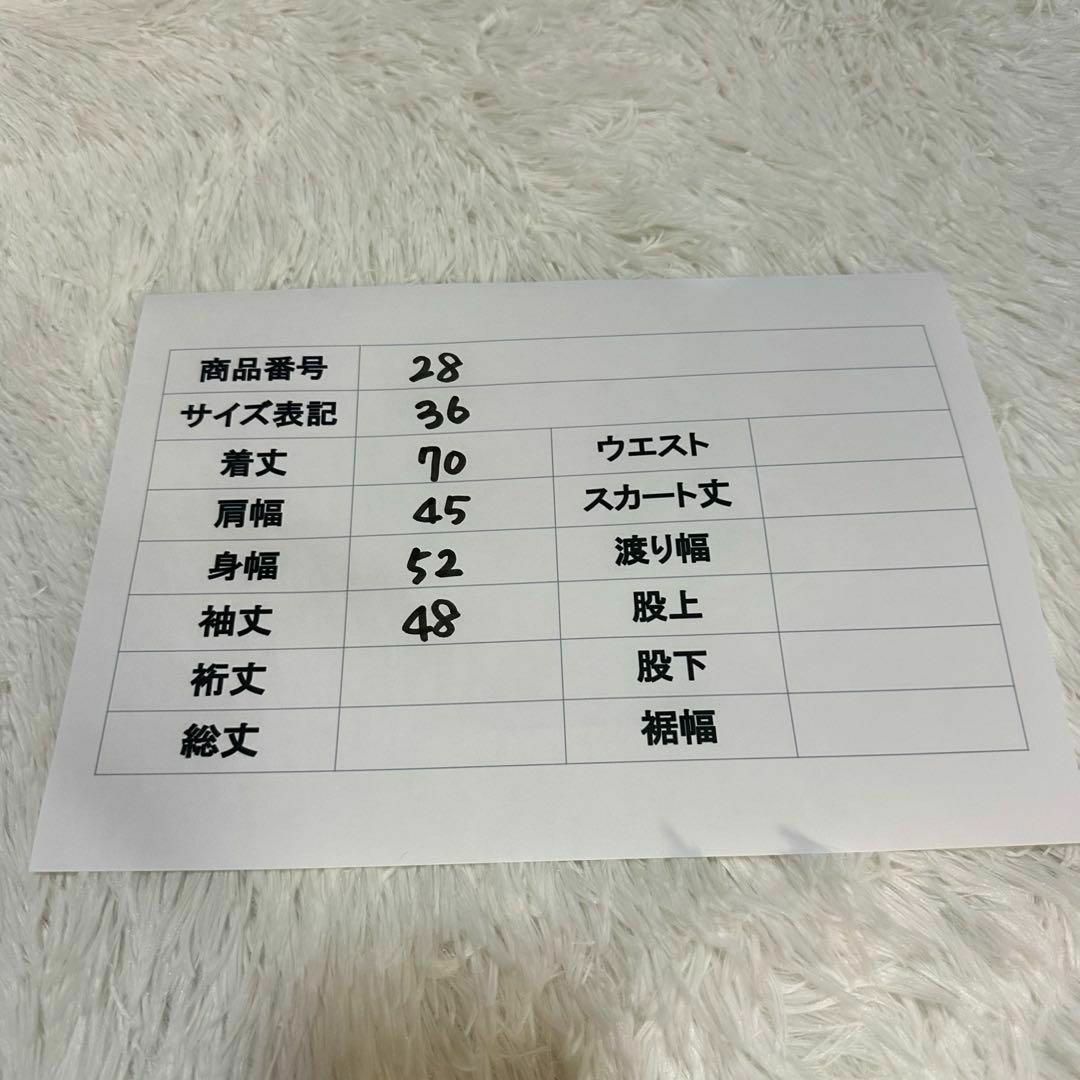 商品番号 28
サイズ表記 36
着丈 70 ウエスト
肩幅 45 スカート丈
身幅 52 渡り幅
袖丈 48 股上
裄丈 股下
総丈 裾幅